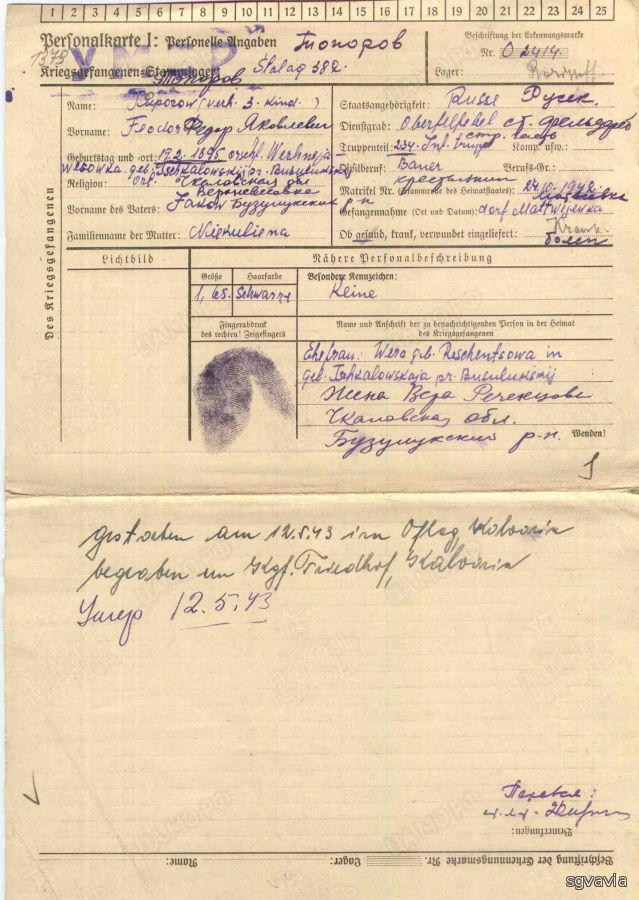 1 2 3 4 5 6 7 8 9 10 11 12 13 14 15 16 17 18 19 20 21 22 23 24 25
Personalkarte I: Personelle Angaben
Топоров
Beschriftung der Erkennungsmarke
Nr. 02414
УМЕР
Kriegsgefangenen-Stammlager: Stalag 382.
Lager:
Топоров
Des Kriegsgefangenen
Name:
Staatsangehörigkeit: Russe Русск.
Vorname: Feodor Федор Яковлевич
Dienstgrad: Oberfelfebel ст. фельдфеб
стр. часть
Truppenteil: 234. Inf. Komp. usw.:
Geburtstag und -ort: 17.2.1895
Zivilberuf: Bauer Berufs-Gr.:
крестьянин
Religion: Чкаловская обл.
Matrikel Nr. (Stammrolle des Heimatstaates): 24.10.1942
Vorname des Vaters: Jakow Бузулукский р-н
Gefangennahme (Ort und Datum): dorf
Familienname der Mutter:
Ob gesund, krank, verwundet eingeliefert: Krank
болен
Lichtbild
Nähere Personalbeschreibung
Größe
Haarfarbe
Besondere Kennzeichen:
1,65. Schwarz
Keine
Fingerabdruck
des rechten! Zeigefingers
Name und Anschrift der zu benachrichtigenden Person in der Heimat
des Kriegsgefangenen
Ehefrau: Wera geb. Reschentsowa in
geb. Tschkalowskaja pr. Busulukskij
Жена Вера Реченцова
Чкаловская обл.
Бузулукский р-н.
Wenden!
gestorben am 12.5.43 im Oflag Kalvaria
begraben im Kgf. Friedhof, Kalvaria
Умер 12.5.43
Перевел:
Bemerkungen:
Beschriftung der Erkennungsmarke Nr.
Lager:
Name:
sgvavia